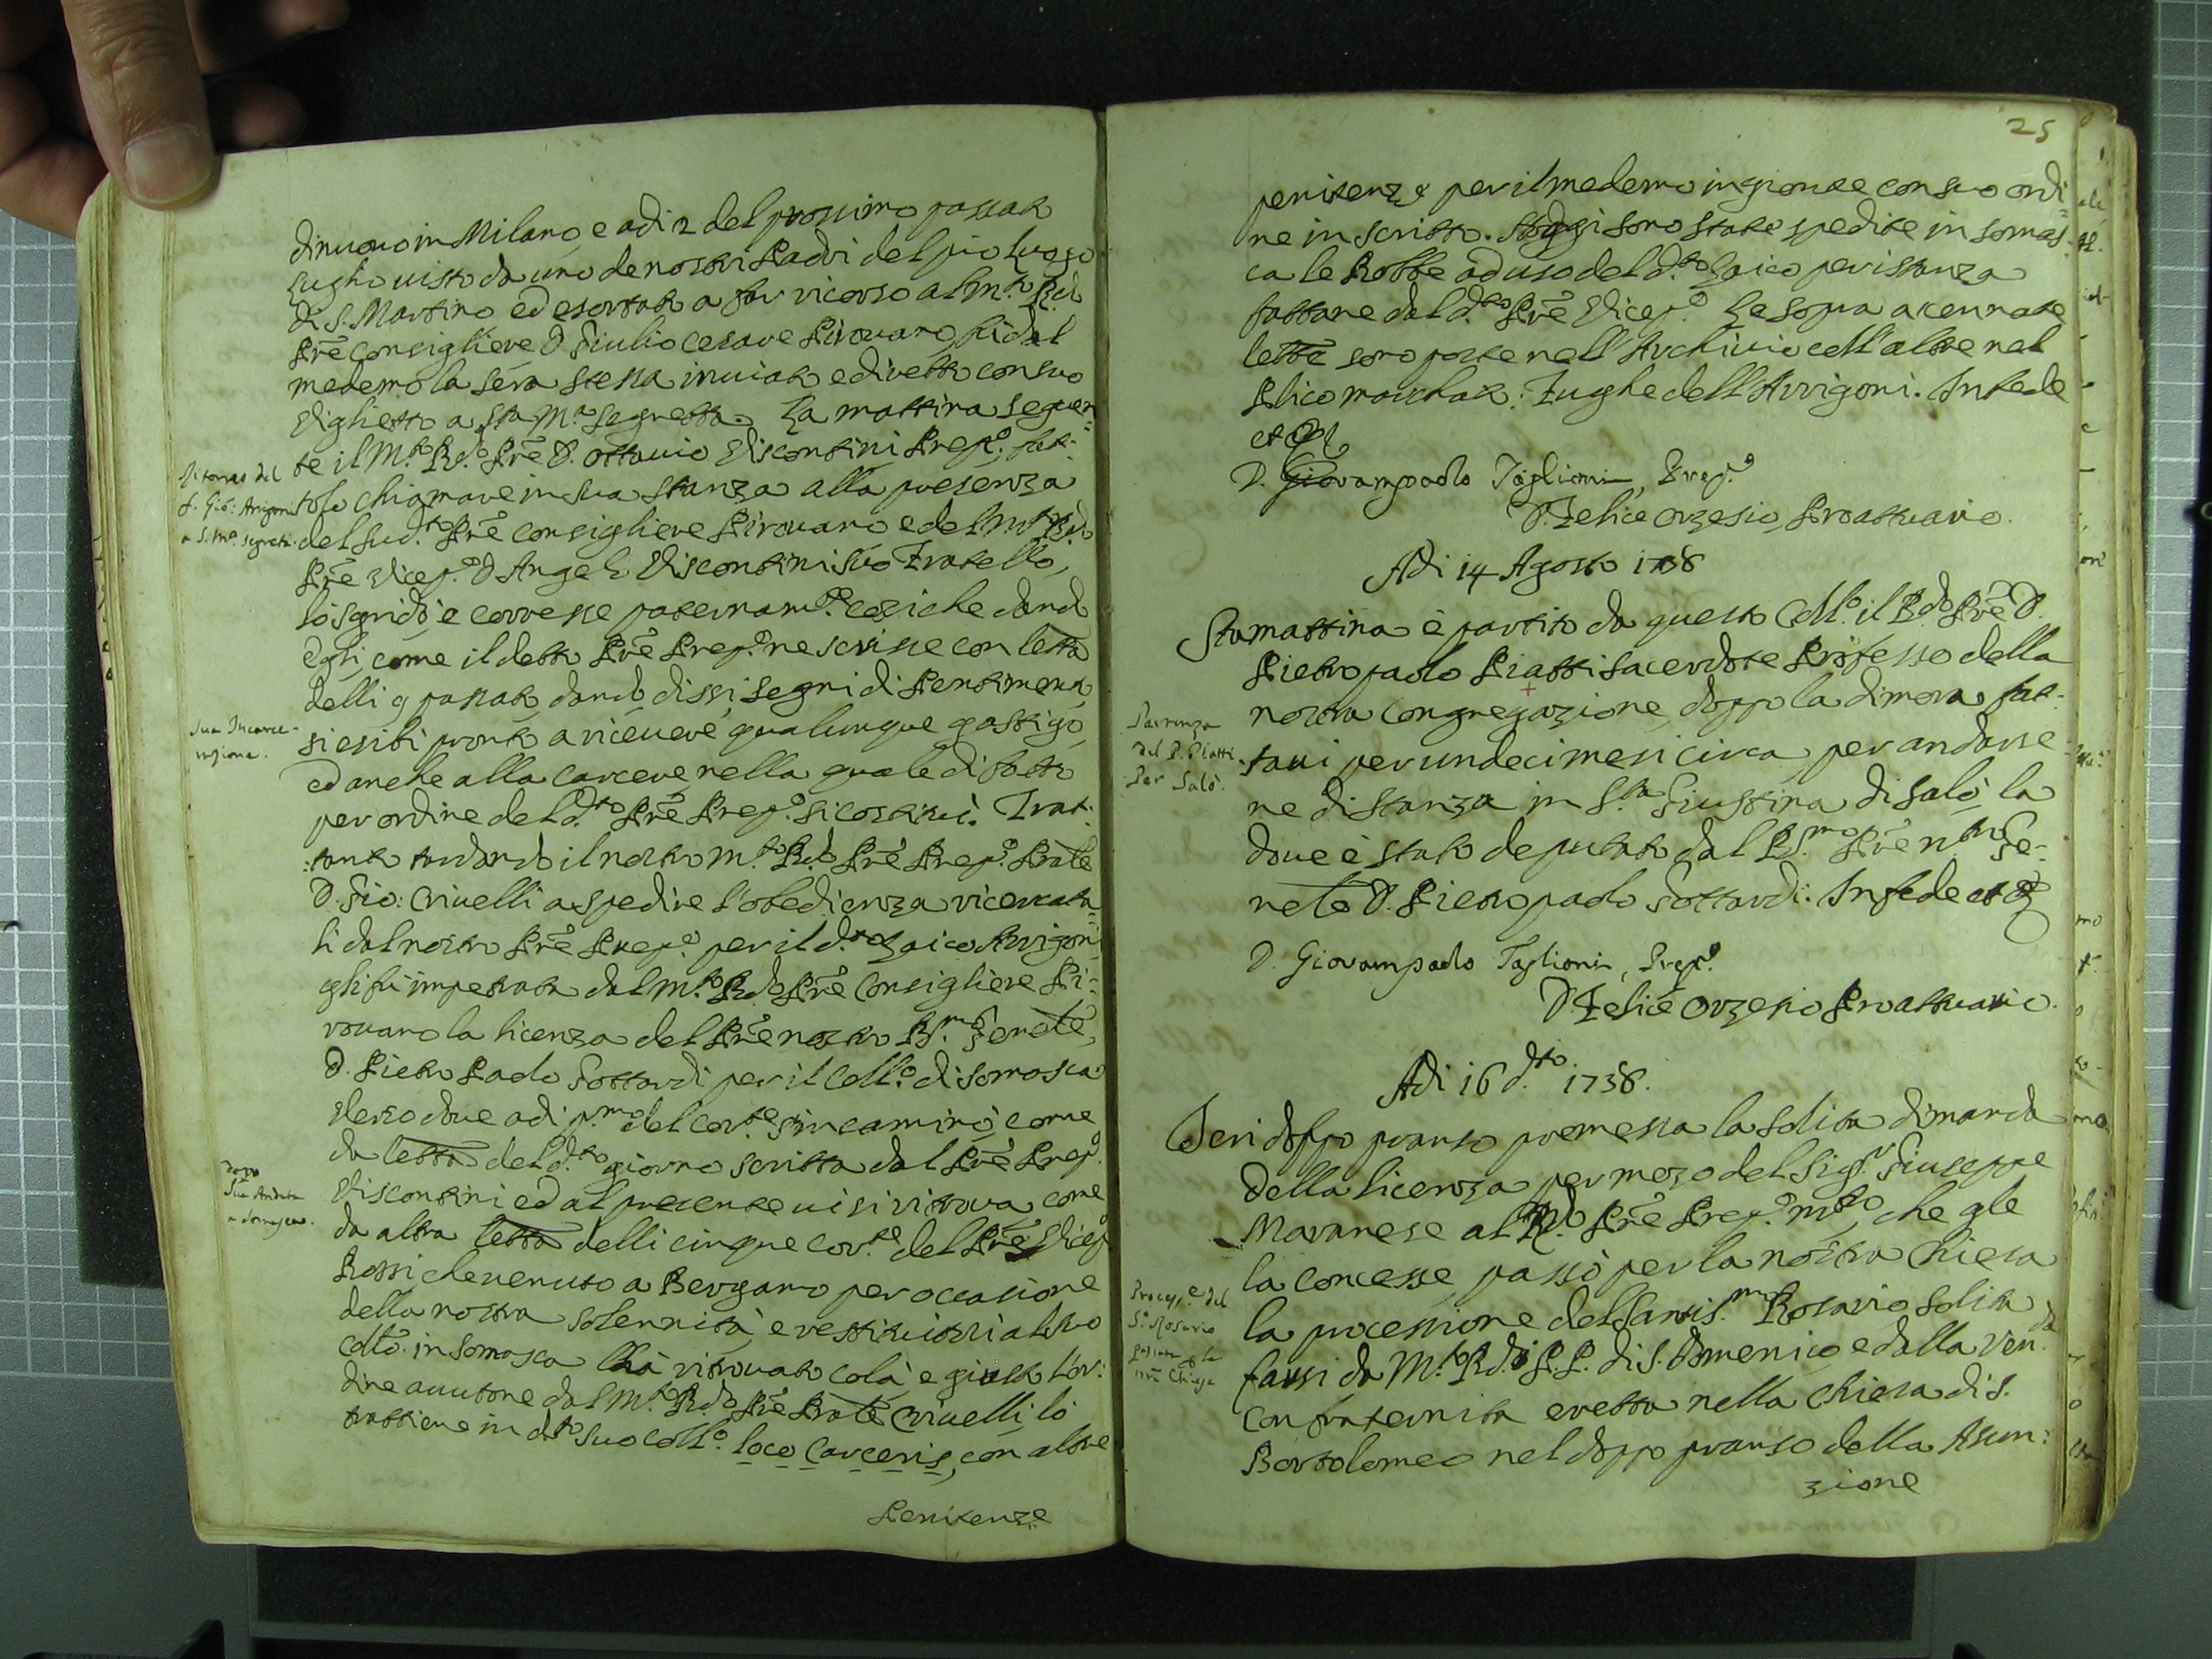 di nuovo in Milano, e adi 2 del prossimo passato
Luglio visto da uno de nostri Padri del pio Luogo
di S. Martino ed esortato a far ricorso al M.to Rdo
Prē Consigliere D. Giulio Cesare Pirovano, fù dal
medemo la sera stessa inviato e diretto con suo
Viglietto a Sta Ma Segretta. La mattina seguen=
te il M.to Rdo Prē D. Ottavio Viscontini Prepo, fat=
tolo chiamare in sua stanza alla presenza
del sud.to Prē Consigliere Pirovano e del M.to Rdo
Prē Vicepo D Angelo Viscontini suo Fratello,
lo sgridò, e corresse paternam.te cosiche dando
egli, come il detto Prē Prepo ne scrisse con letta
delli 9 passato, dando, dissi, segni di Pentimento
si esibì pronto a ricevere qualunque gastigo,
ed anche alla carcere, nella quale di fatto
per ordine del d.to Prē Prepo si costituì. Frat=
:tanto tardando il nostro M.to Rdo Prē Prepo Prāle
D. Gio: Crivelli a spedire l'obedienza ricercata=
li dal nostro Prē Prepo per il d.to Laico Arrigoni,
gli fù impetrata dal M.to Rdo Prē Consigliere Pi=
rovano la licenza del Prē nostro R.mo Genāle,
D. Pietro Paolo Gottardi per il Coll.o di Somasca
verso dove adi p.mo del cor.te s'incaminò, come
da letta del d.to giorno scritta dal Prē Prepo
Viscontini ed al presente vi si ritrova come
da altra letta delli cinque cor.te del Prē Vicepo
Rossi che venuto a Bergamo per occasione
della nostra solennità, e restituitosi al suo
Coll.o in Somasca l'hà ritrovato colà e giusto l'or:
dine avutone dal M.to Rdo Prē Prāle Crivelli, lo
trattiene in d.to suo Coll.o loco Carceris, con altre
Penitenze
Ritorno del
f. Gio: Arigoni
a S. Ma. Segreta.
Sua Incarce-
razione.
dopo
Sua Andata
a Somasca.
25
penitenze per il medemo ingionte con suo ordi=
ne in scritto. Oggi sono state spedite in Somas=
ca le Robbe ad uso del d.to Laico per istanza
fattane dal d.to Prē Vicepo. Le sopra acennate
lettē sono poste nell'Archivio coll'altre nel
Plico marchato: Fughe dell'Arrigoni. In fede
D. Giovampaolo Taglioni, Prepo
D. Felice Orzesio Proattuario.
Adi 14 Agosto 1738
Stamattina è partito da questo Coll.o il Rdo Prē D.
Pietro paolo Piatti Sacerdote Professo della
nostra Congregazione, doppo la dimora fat=
tavi per undeci mesi circa per andarse=
ne di stanza in S.ta Giustina di Salò, la
dove è stato deputato dal R.mo Prē nrō Ge=
nele D. Pietro paolo Gottardi. In fede
D. Giovampaolo Taglioni, Prepo
D. Felice Orzesio Proattuario.
Adi 16 d.to 1738.
Ieri doppo pranso premessa la solita dimanda
della licenza per mezo del Sig.r Giuseppe
Maranese al Rdo Prē Prepo che gle
la concesse, passò per la nostra Chiesa
la processione del Santis.mo Rosario solita
farsi da M.to Rdi P.P. di S. Domenico e dalla Ven.da
Confraternita eretta nella Chiesa di S.
Bortolomeo nel doppo pranso della Asun:
zione
Partenza
del P. Piatti
Per Salò.
Process.e del
S.o Rosario
passata p la
nrā Chiesa